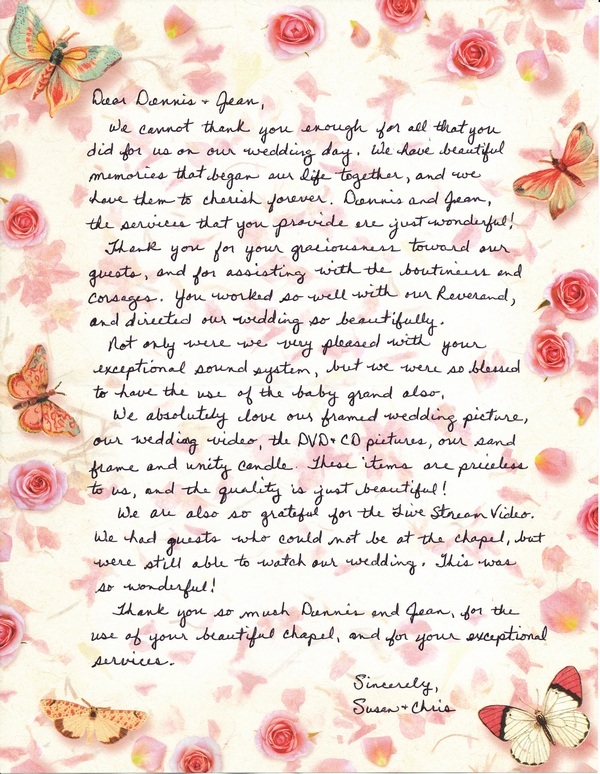 Dear Dennis + Jean,
We cannot thank you enough for all that you
did for us on our wedding day. We have beautiful
memories that began our life together, and we
have them to cherish forever. Dennis and Jean,
the services that you provide are just wonderful!
Thank you for your graciousness toward our
guests, and for assisting with the boutineers and
corsages. You worked so well with our Reverand,
and directed our wedding so beautifully.
Not only were we very pleased with your
exceptional sound system, but we were so blessed
to have the use of the baby grand also.
We absolutely love our framed wedding picture,
our wedding video, the DVD + CD pictures, our sand
frame and unity candle. These items are priceless
to us, and the quality is just beautiful!
We are also so grateful for the Live Stream Video.
We had guests who could not be at the chapel, but
were still able to watch our wedding. This was
so wonderful!
Thank you so much Dennis and Jean, for the
use of your beautiful chapel, and for your exceptional
services.
Sincerely,
Susan + Chris